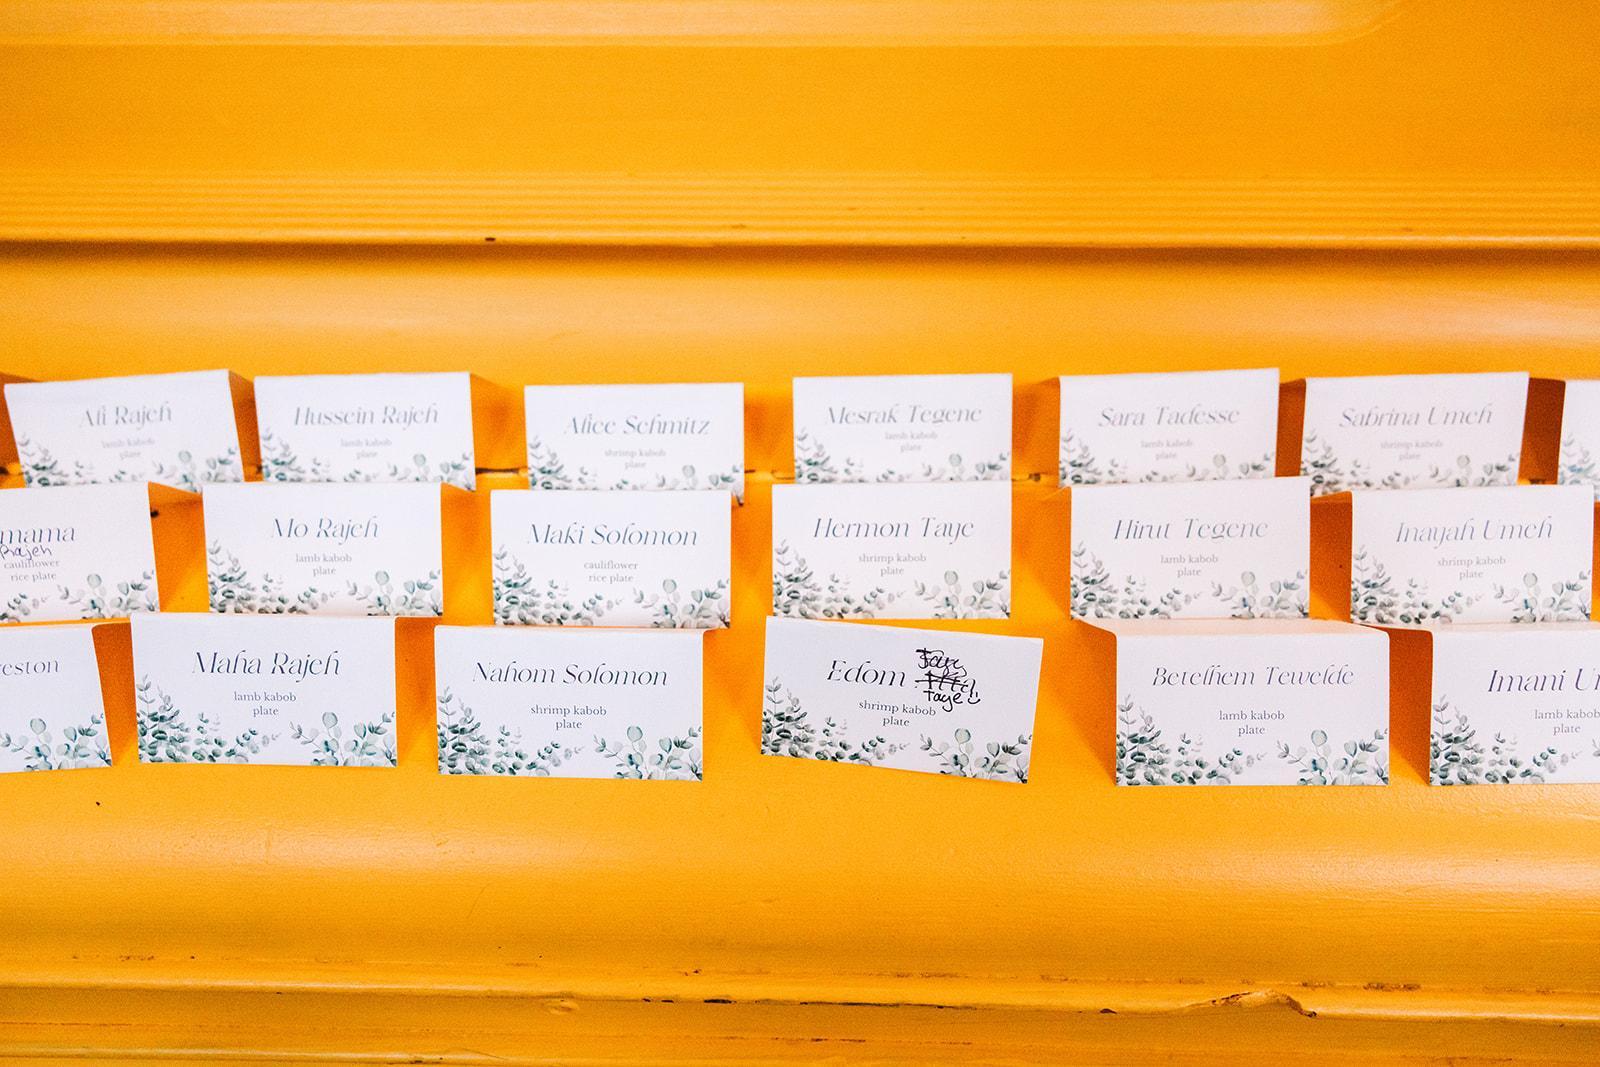 Ali Rajeh
lamb kabob
plate
Hussein Rajeh
lamb kabob
plate
Alice Schmitz
shrimp kabob
plate
Mesrak Tegene
lamb kabob
plate
Sara Tadesse
lamb kabob
plate
Sabrina Umeh
shrimp kabob
plate
mama
Rajeh
cauliflower
rice plate
Mo Rajeh
lamb kabob
plate
Maki Solomon
cauliflower
rice plate
Hermon Taye
shrimp kabob
plate
Hirut Tegene
lamb kabob
plate
Inayah Umeh
shrimp kabob
plate
eston
Maha Rajeh
lamb kabob
plate
Nahom Solomon
shrimp kabob
plate
Edom
Taye
shrimp kabob
plate
Betelhem Tewelde
lamb kabob
plate
Imani U
lamb kabob
plate